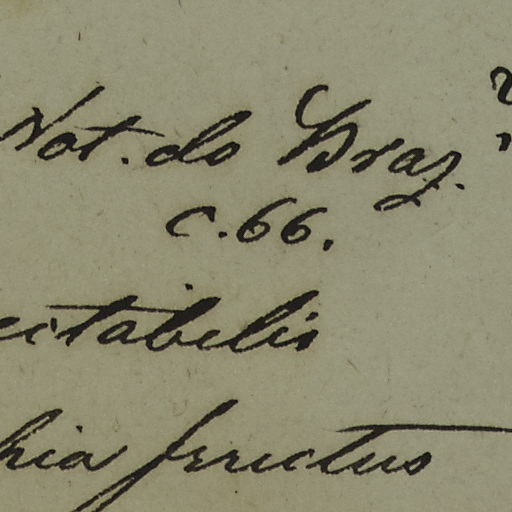 Not. do Braz.
c. 66.
ectabilis
hia fructus